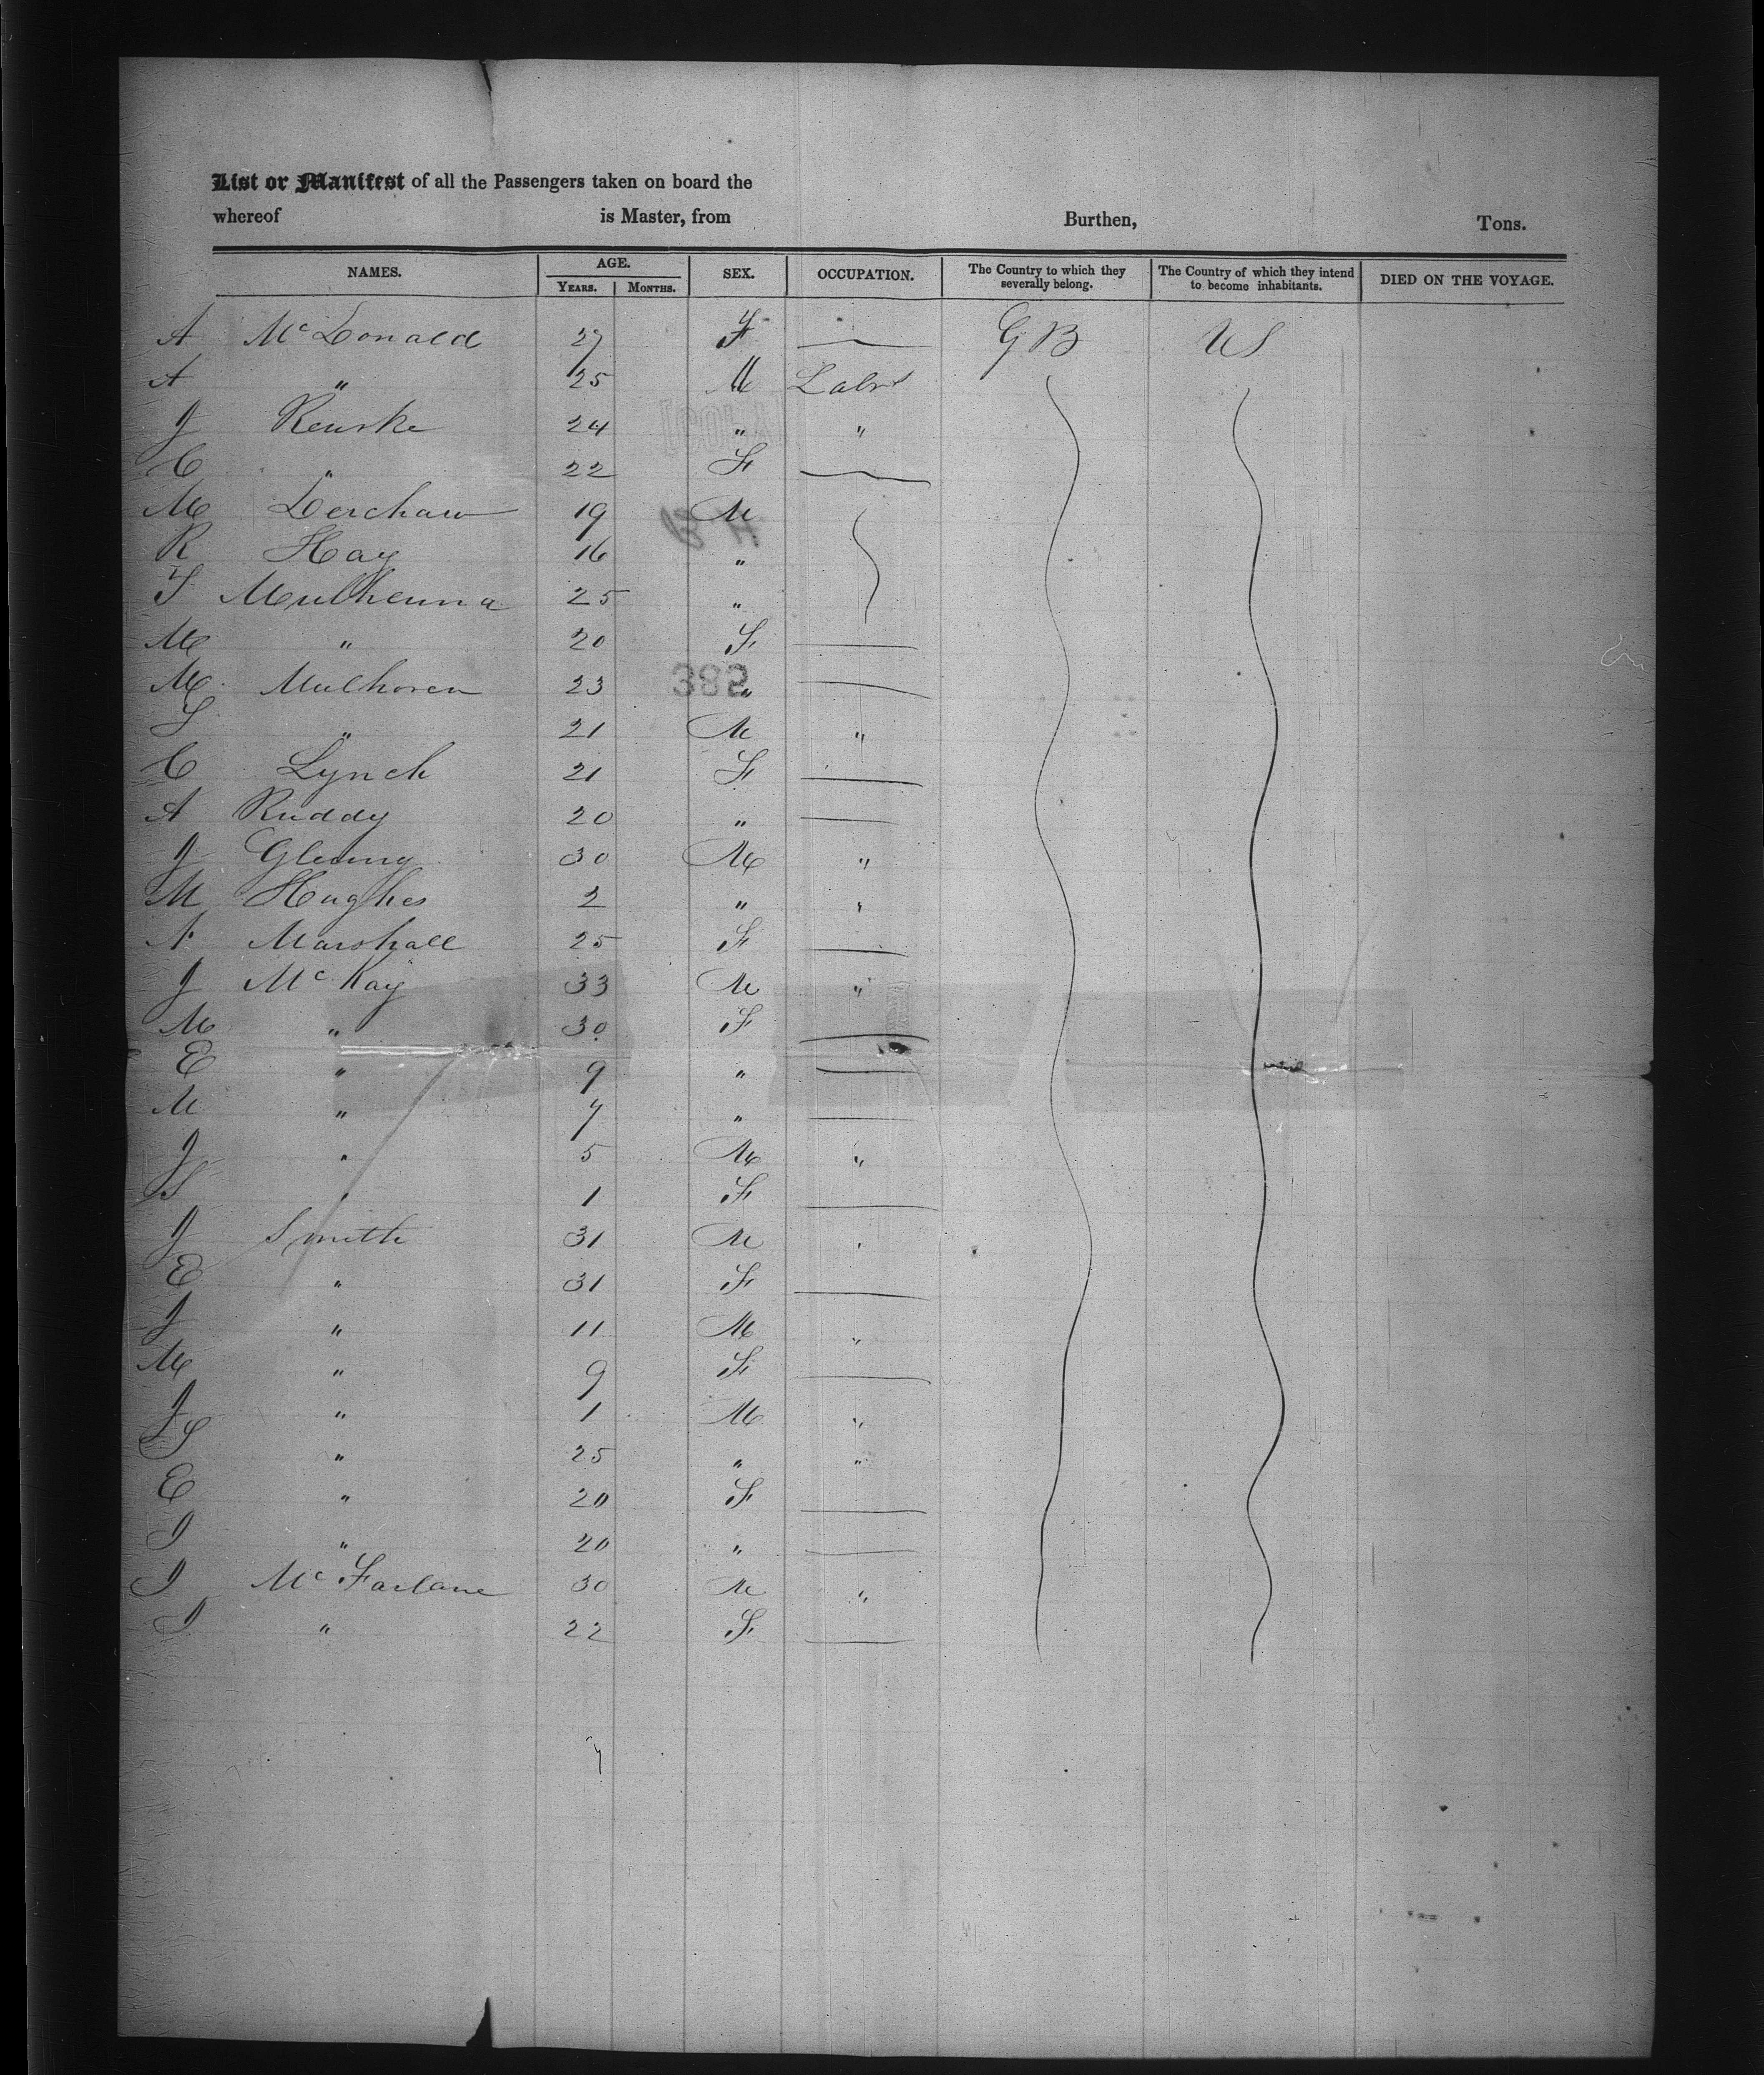 List or Manifest of all the Passengers taken on board the
whereof is Master, from Burthen, Tons.
NAMES. AGE. SEX. OCCUPATION. The Country to which they severally belong. The Country of which they intend to become inhabitants. DIED ON THE VOYAGE.
YEARS. MONTHS.
A McDonald 27 F — GB US
A " 25 M Labr
J Rourke 24 " "
C " 22 F —
M Derchaw 19 M
R Hay 16 "
T Mulhenna 25 "
M " 20 F —
M Mulhoren 23 " —
S " 21 M "
C Lynch 21 F —
A Ruddy 20 " —
J Glenny 30 M "
M Hughes 2 " "
A Marshall 25 F —
J McKay 33 M "
M " 30 F —
E " 9 " —
M " 7 " —
J " 5 M "
S " 1 F —
J Smith 31 M "
E " 31 F —
J " 11 M "
M " 9 F —
J " 1 M "
S " 25 " "
E " 20 F —
I " 20 " —
I McFarlane 30 M "
I " 22 F —